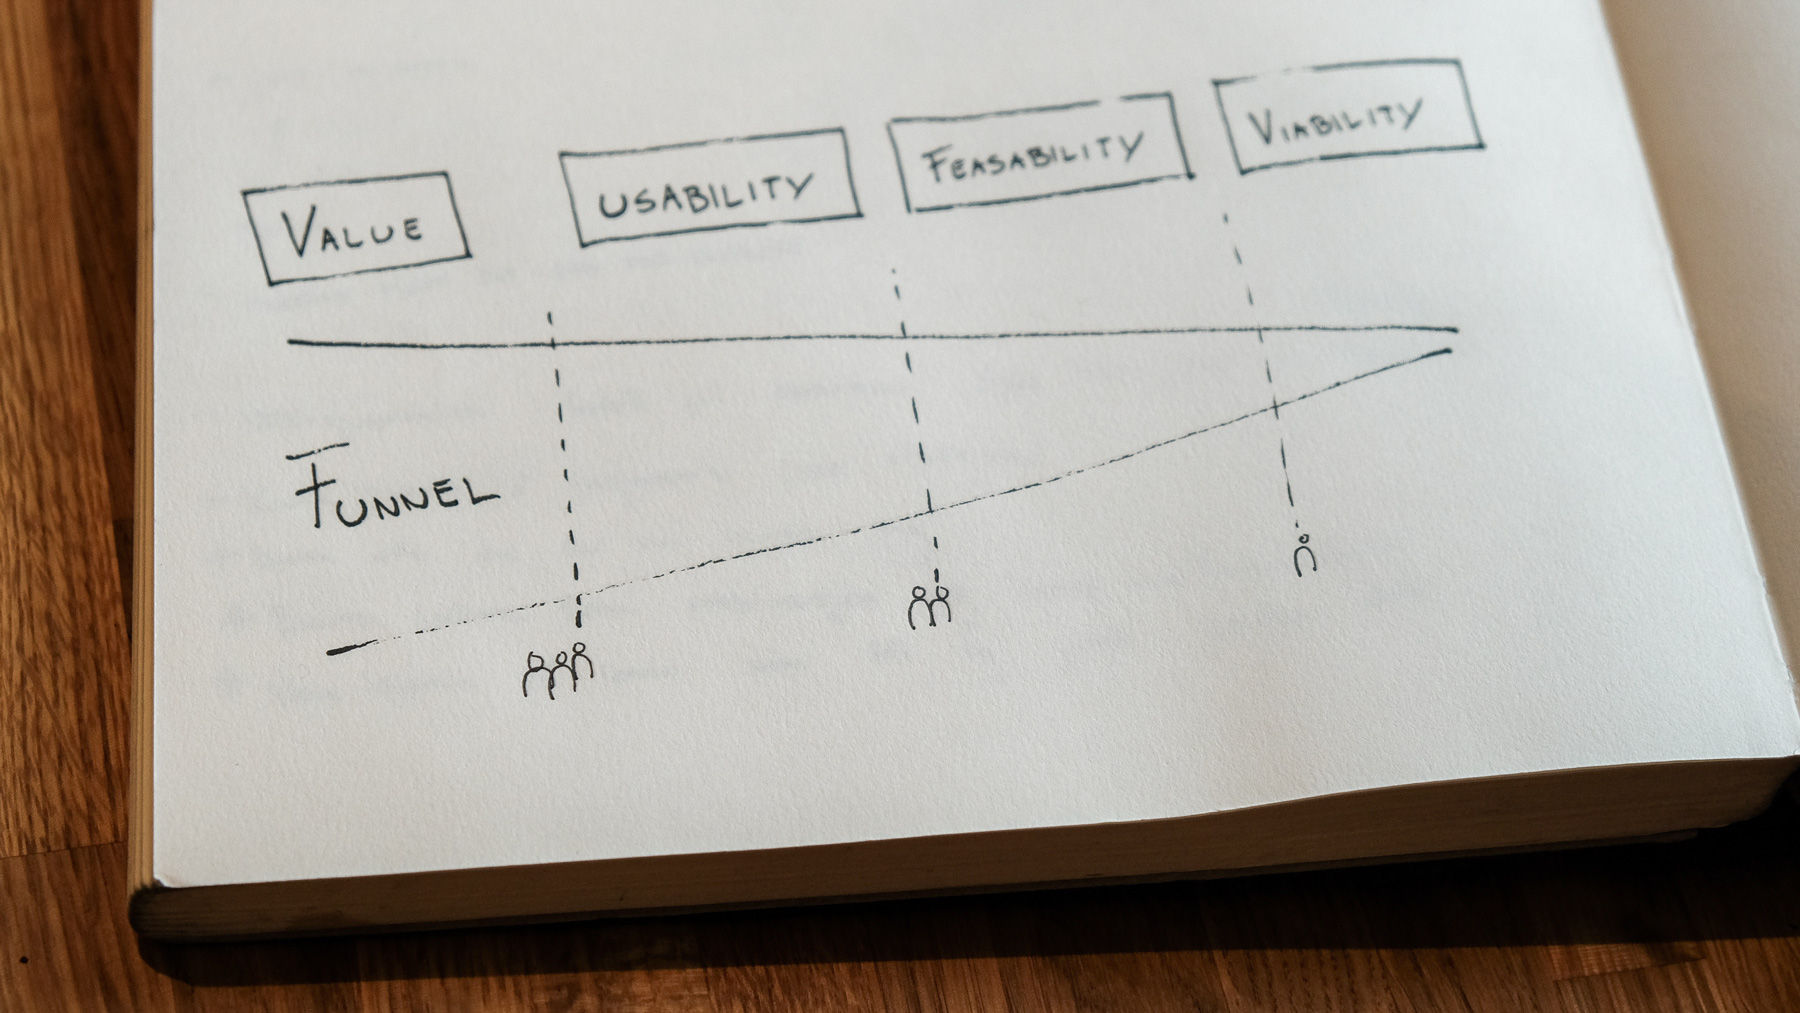 VALUE
USABILITY
FEASABILITY
VIABILITY
FUNNEL